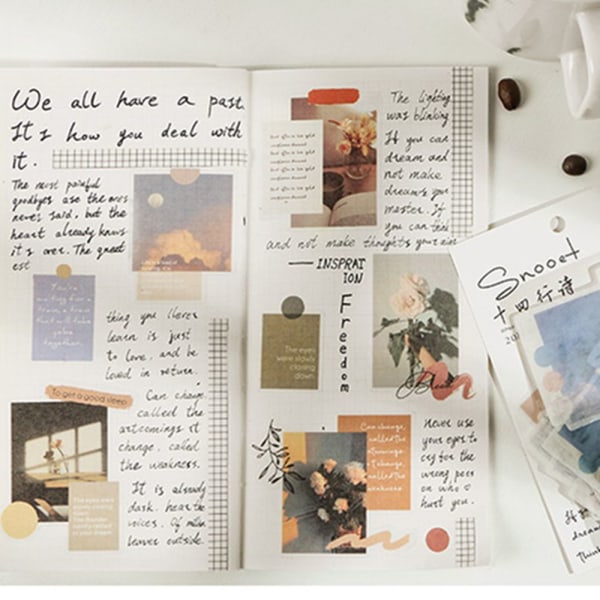 We all have a past.
It's how you deal with
it.
The most painful
goodbyes are the ones
never said, but the
heart already knows
it's over. The greatest
est
You're
waiting for a
train, a train
that will take
you
together.
thing you'll ever
learn is just
to love, and be
loved in return.
To get a good sleep
Can change,
called the
artcomings it
change, called
the weakness.
It is already
dark. hear the
voices. Of
leaves outside.
The eyes were
slowly closing
down.
The lighting
was blinking
If you can
dream and
not make
dreams your
master. If
you can think
and not make thoughts your aim
INSPRAT
ION
Freedom
The eyes
were slowly
closing
down.
Can change,
called the
change,
called the
weakness
Never use
your eyes to
cry for the
wrong person
on who
hurt you.
Snooet
十四行诗
If
dream
think